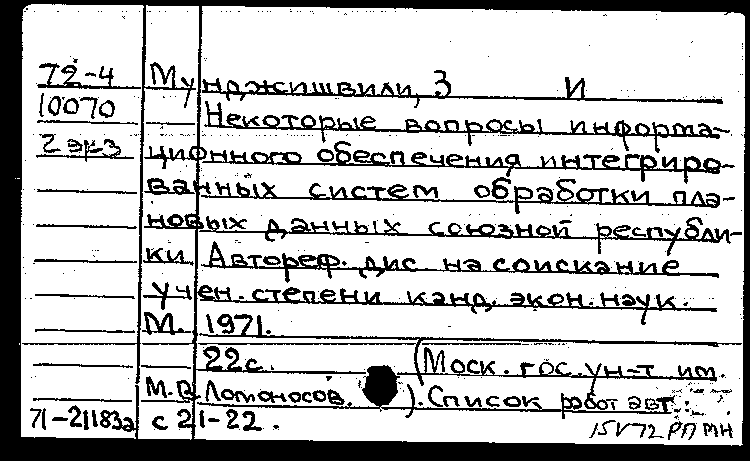 72-4 Мунджишвили, З И
10070 Некоторые вопросы информа-
2 экз ционного обеспечения интегриро-
ванных систем обработки пла-
новых данных союзной республи-
ки Автореф. дис на соискание
учен. степени канд. экон. наук.
М. 1971.
22с. (Моск. гос. ун-т им.
М.В. Ломоносов. ). Список работ авт.:
71-21183а с 21-22.
15 V 72 РП МН